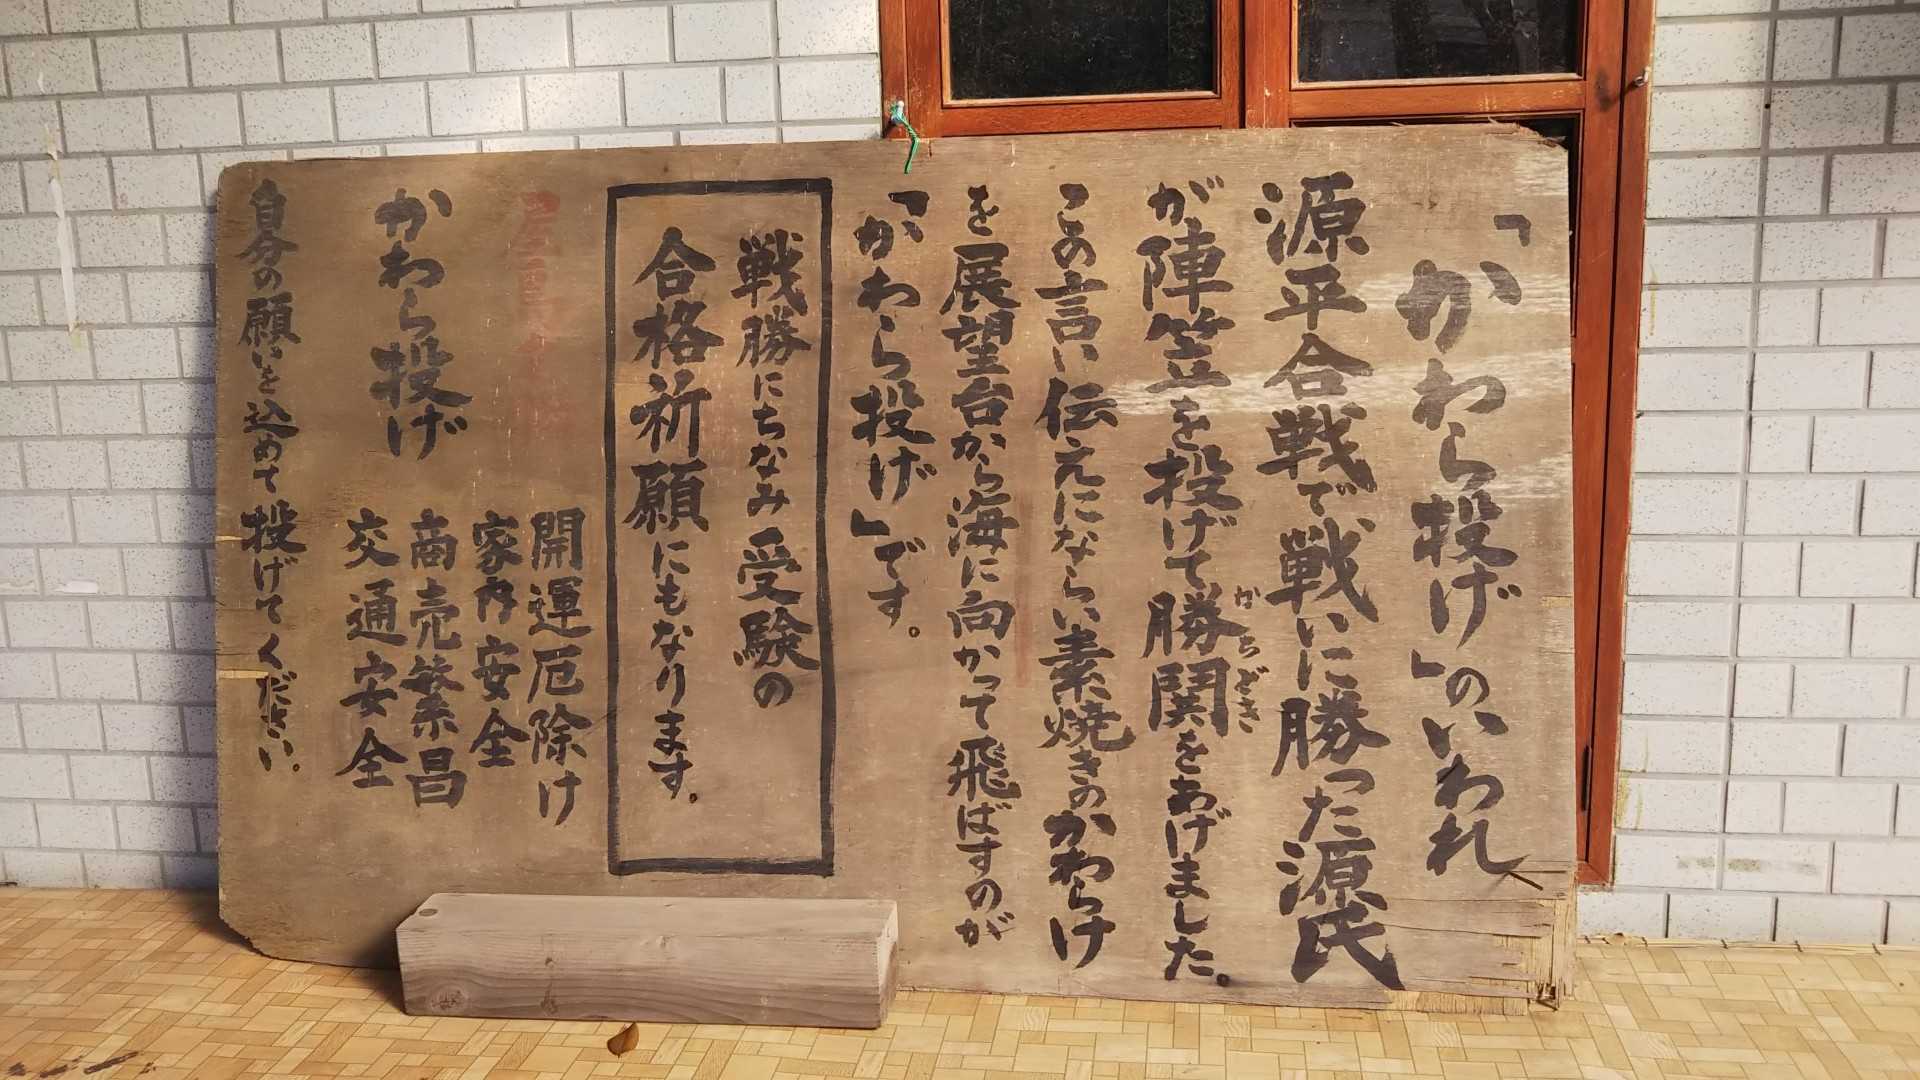 「かわら投げ」のいわれ
源平合戦で戦いに勝った源氏
が、陣笠を投げて勝鬨をあげました。
かちどき
この言い伝えにならい素焼きのかわらけ
を展望台から海に向かって飛ばすのが
「かわら投げ」です。
戦勝にちなみ受験の
合格祈願にもなります。
開運厄除け
家内安全
かわら投げ
商売繁昌
交通安全
自分の願いを込めて投げてください。